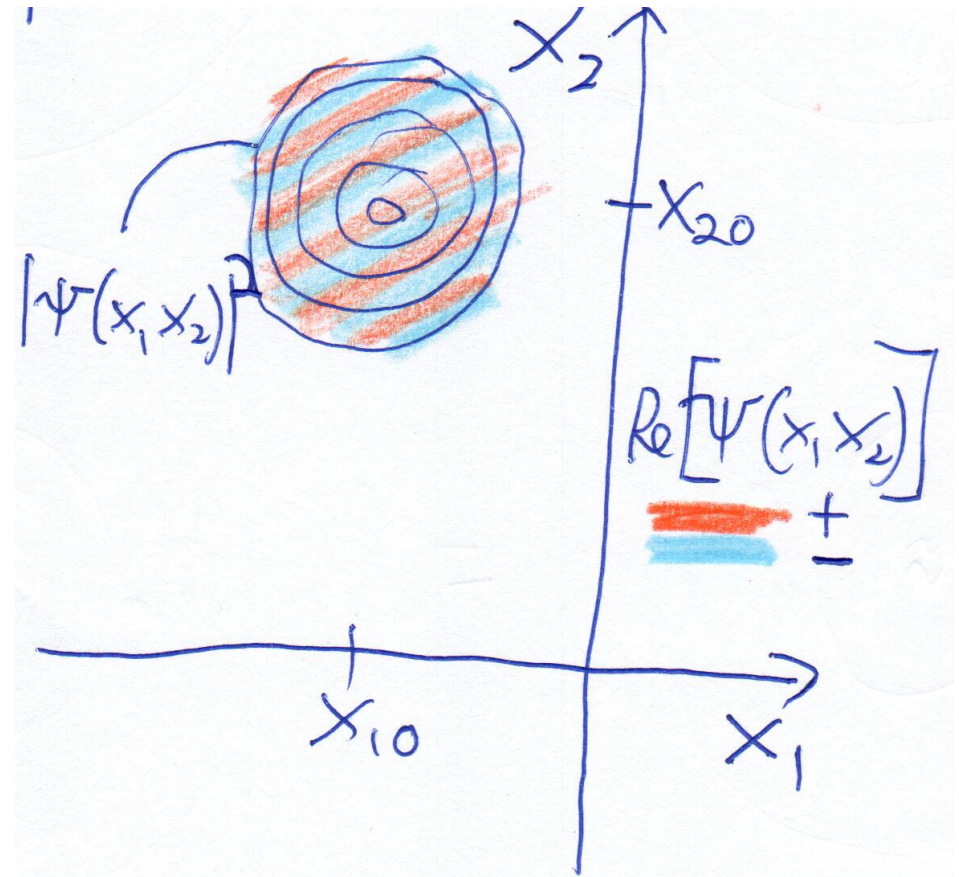 X₂
X₂₀
|ψ(x₁ x₂)|²
Re[ψ(x₁ x₂)]
+
−
X₁₀
X₁